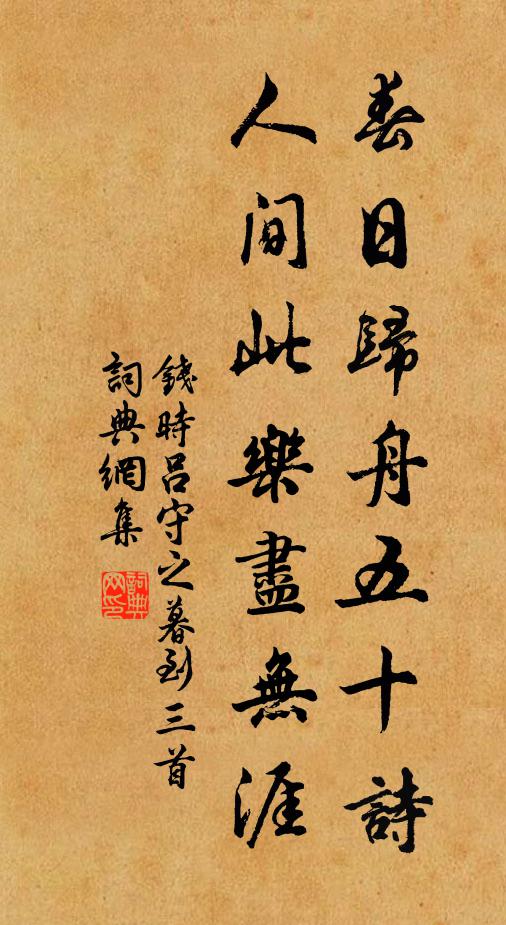 春日歸舟五十詩
人間此樂盡無涯
錢時呂守之暮到三首
詞典網集
詞典网印